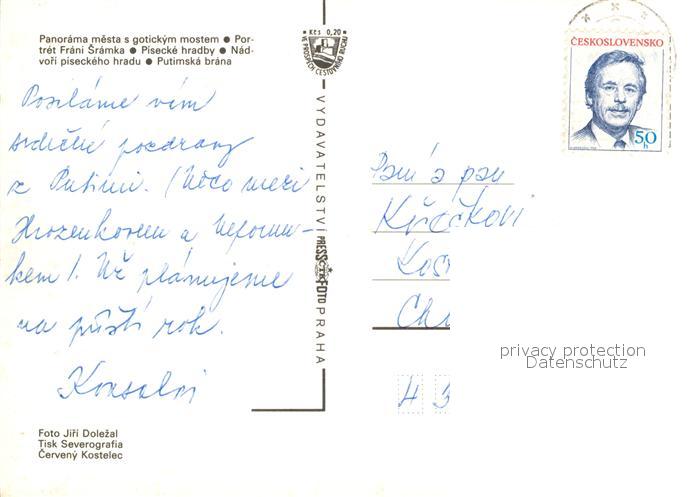 Panoráma města s gotickým mostem ● Por-
trét Fráni Šrámka ● Písecké hradby ● Nád-
voří píseckého hradu ● Putimská brána
Kčs 0,20
VE PROSPĚCH CESTOVNÍHO RUCHU
ČESKOSLOVENSKO
50
h
Posíláme vám
srdečné pozdravy
z Putimi. (Něco mezi
Hrozenkovem a Neformn-
kem). Už plánujeme
na příští rok.
VYDAVATELSTVÍ PRESSFOTO PRAHA
ČTK
Paní a pan
Kos
Ch
4 3
privacy protection
Datenschutz
Foto Jiří Doležal
Tisk Severografia
Červený Kostelec